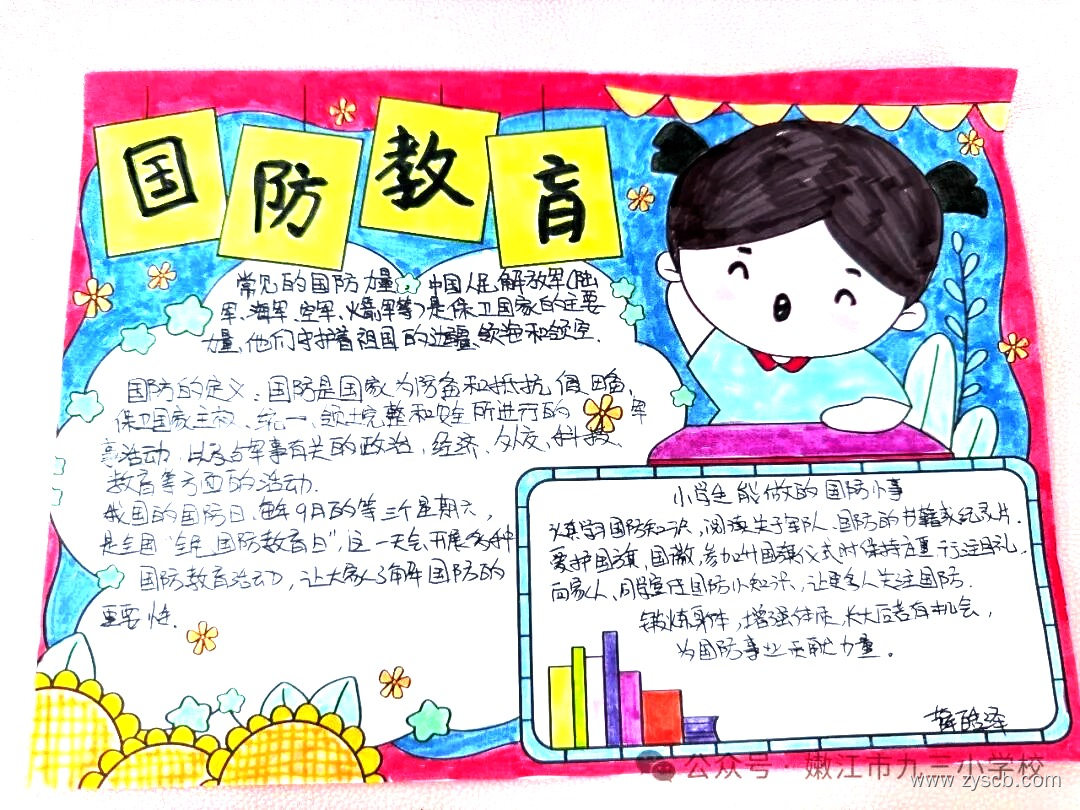 国防教育
常见的国防力量：中国人民解放军(陆
军、海军、空军、火箭军等)是保卫国家的主要
力量、他们守护着祖国的边疆、领海和领空.
国防的定义：国防是国家为防备和抵抗侵略，
保卫国家主权、统一、领土完整和安全所进行的军
事活动，以及与军事有关的政治，经济、外交、科技、
教育等方面的活动.
我国的国防日、每年9月的第三个星期六，
是全国“全民国防教育日”，这一天会开展各种
国防教育活动，让大家了解国防的
重要性.
小学生能做的国防小事
认真学习国防知识，阅读关于军队、国防的书籍或纪录片.
爱护国旗，国徽，参加升国旗仪式时保持庄重行注目礼，
向家人、同学宣传国防小知识，让更多人关注国防.
锻炼身体，增强体质，长大后若有机会，
为国防事业贡献力量。
公众号·嫩江市九三小学校
www.zyscb.com